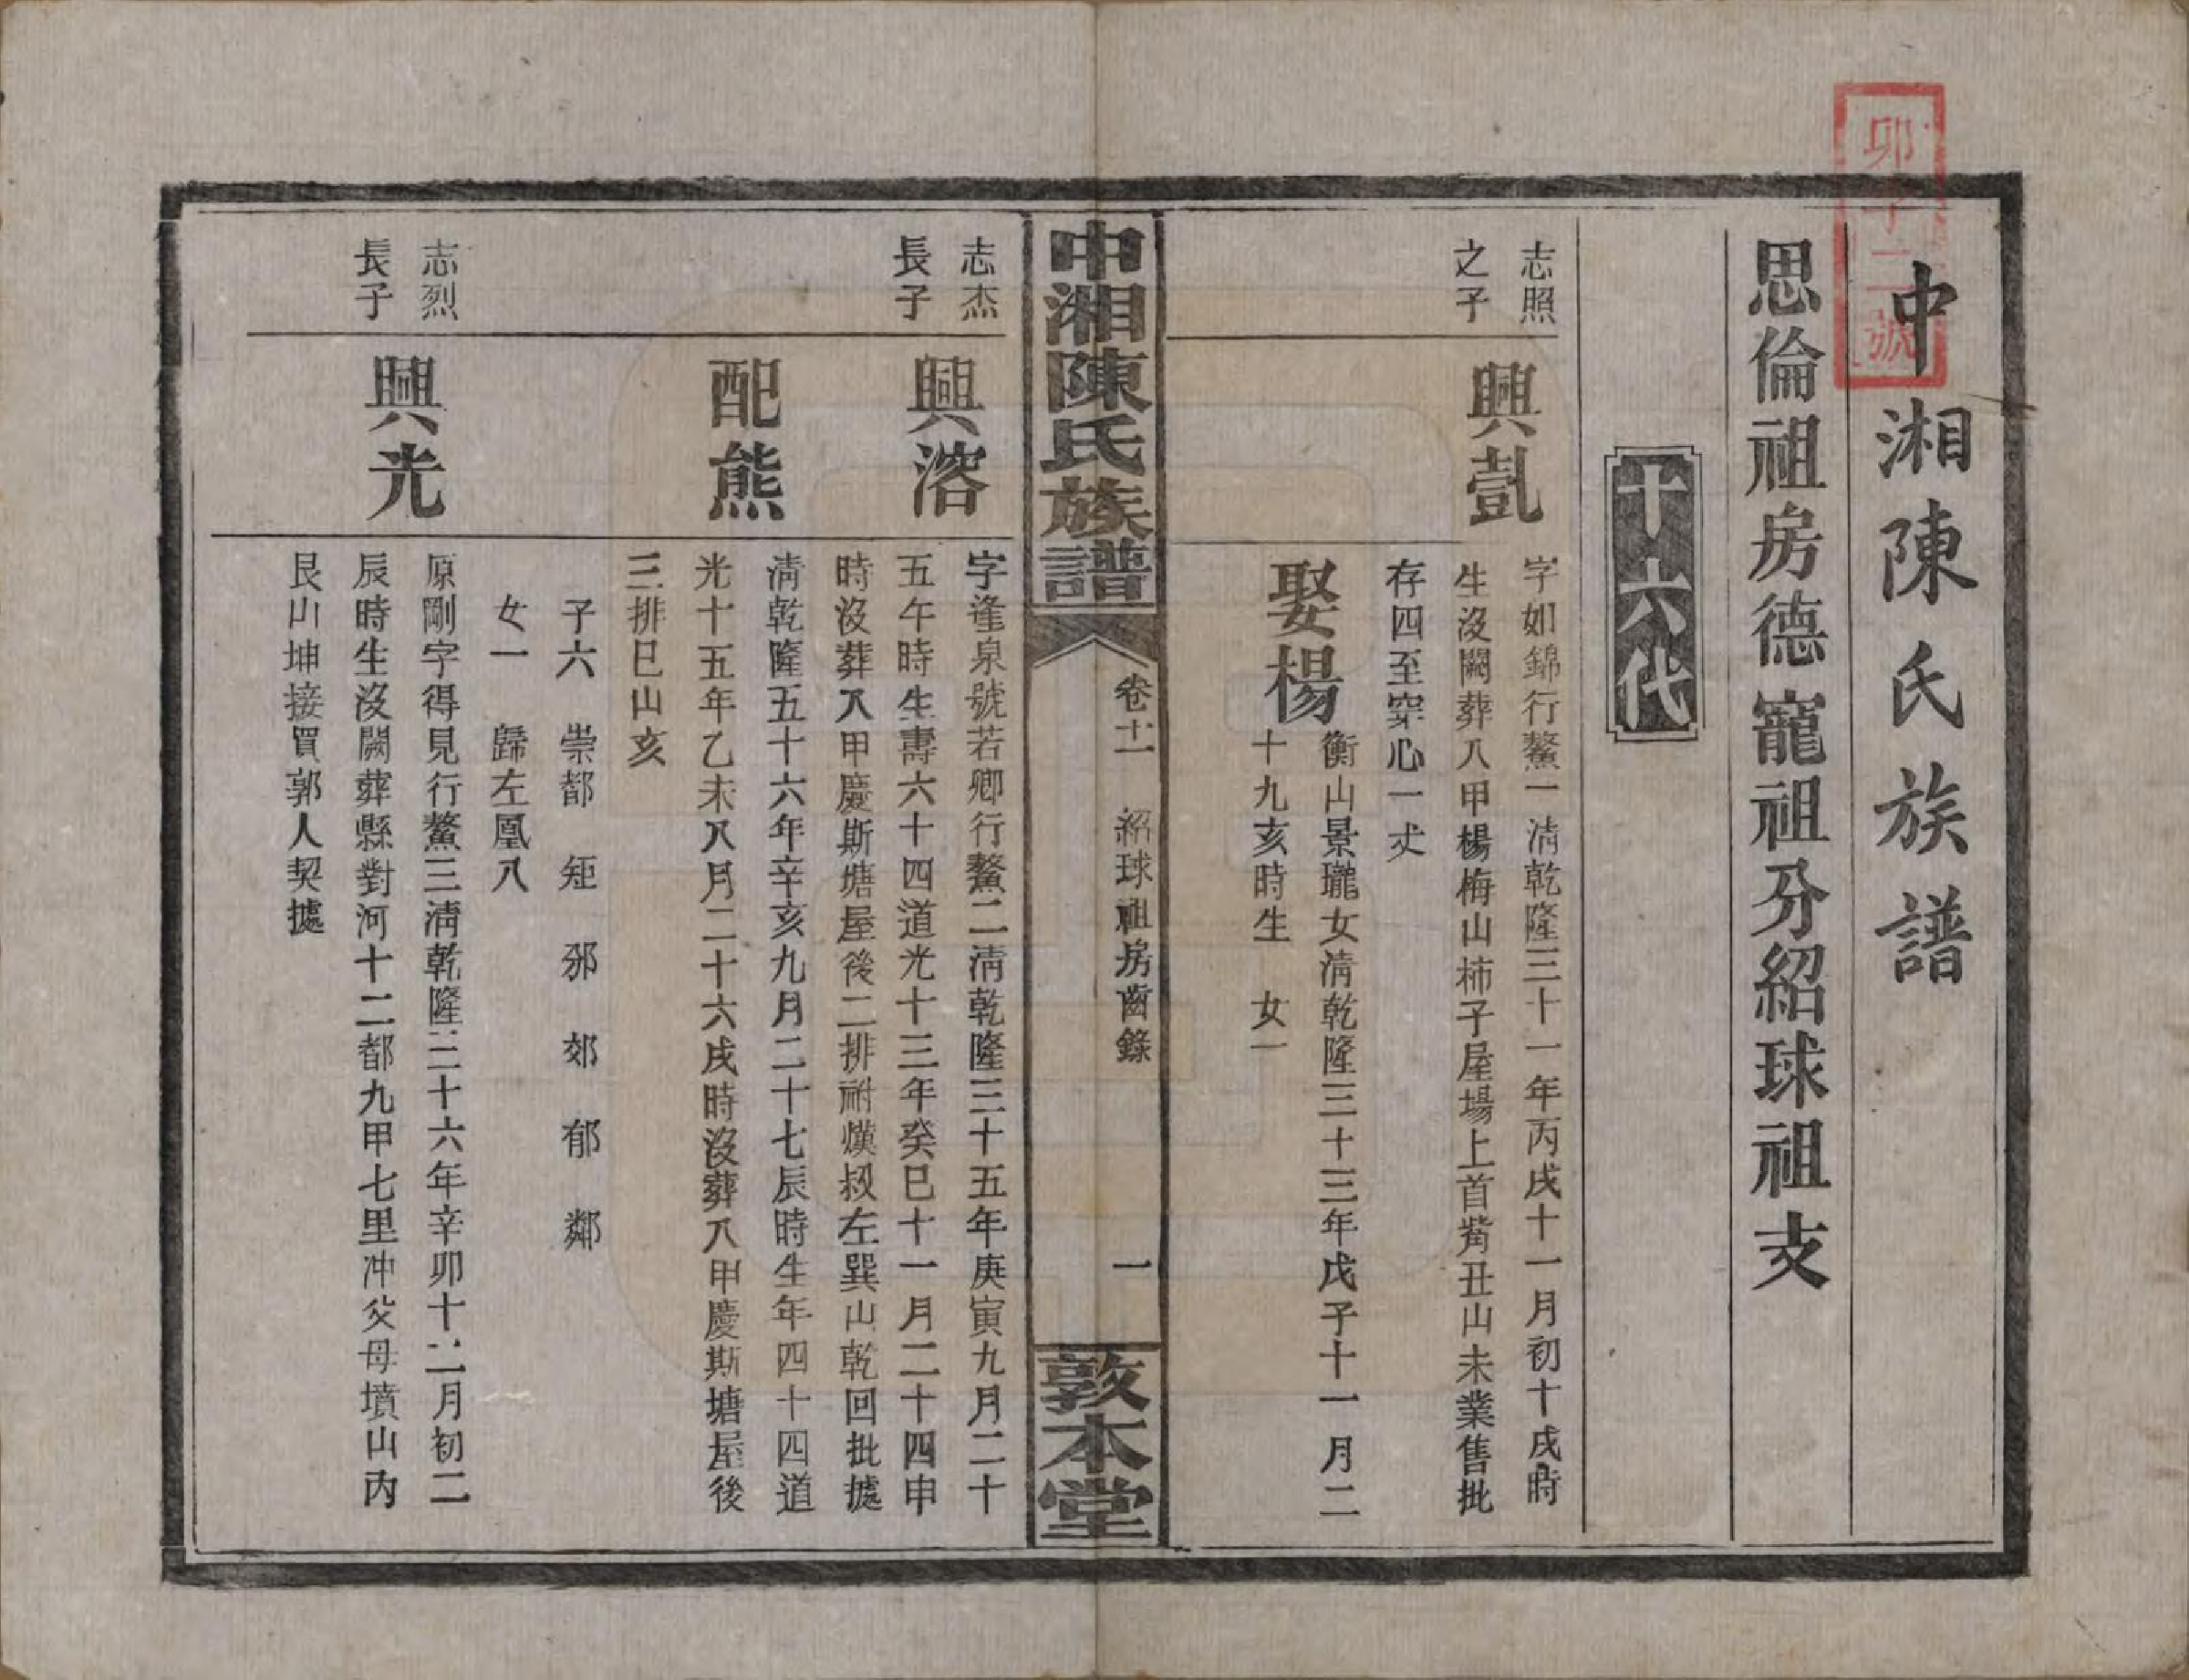 中湘陳氏族譜
思倫祖房德寵祖分紹球祖支
十六代
志照
之子
興
字如錦行鰲一清乾隆三十一年丙戌十一月初十戌時
生沒闕葬八甲楊梅山柿子屋場上首觜丑山未業售批
存四至穿心一丈
娶楊
衡山景瓏女清乾隆三十三年戊子十一月二
十九亥時生 女一
中湘陳氏族譜
卷十一 紹球祖房齒錄 一
敦本堂
志杰
長子
興溶
字逢泉號若卿行鰲二清乾隆三十五年庚寅九月二十
五午時生壽六十四道光十三年癸巳十一月二十四申
時沒葬八甲慶斯塘屋後二排祔熯叔左巽山乾回批據
配熊
清乾隆五十六年辛亥九月二十七辰時生年四十四道
光十五年乙未八月二十六戌時沒葬八甲慶斯塘屋後
三排巳山亥
子六 崇都 矩 邠 郊 郁 鄰
女一 歸左凰八
志烈
長子
興光
原剛字得見行鰲三清乾隆三十六年辛卯十二月初二
辰時生沒闕葬縣對河十二都九甲七里冲父母墳山內
艮山坤接買郭人契據
卯字二號